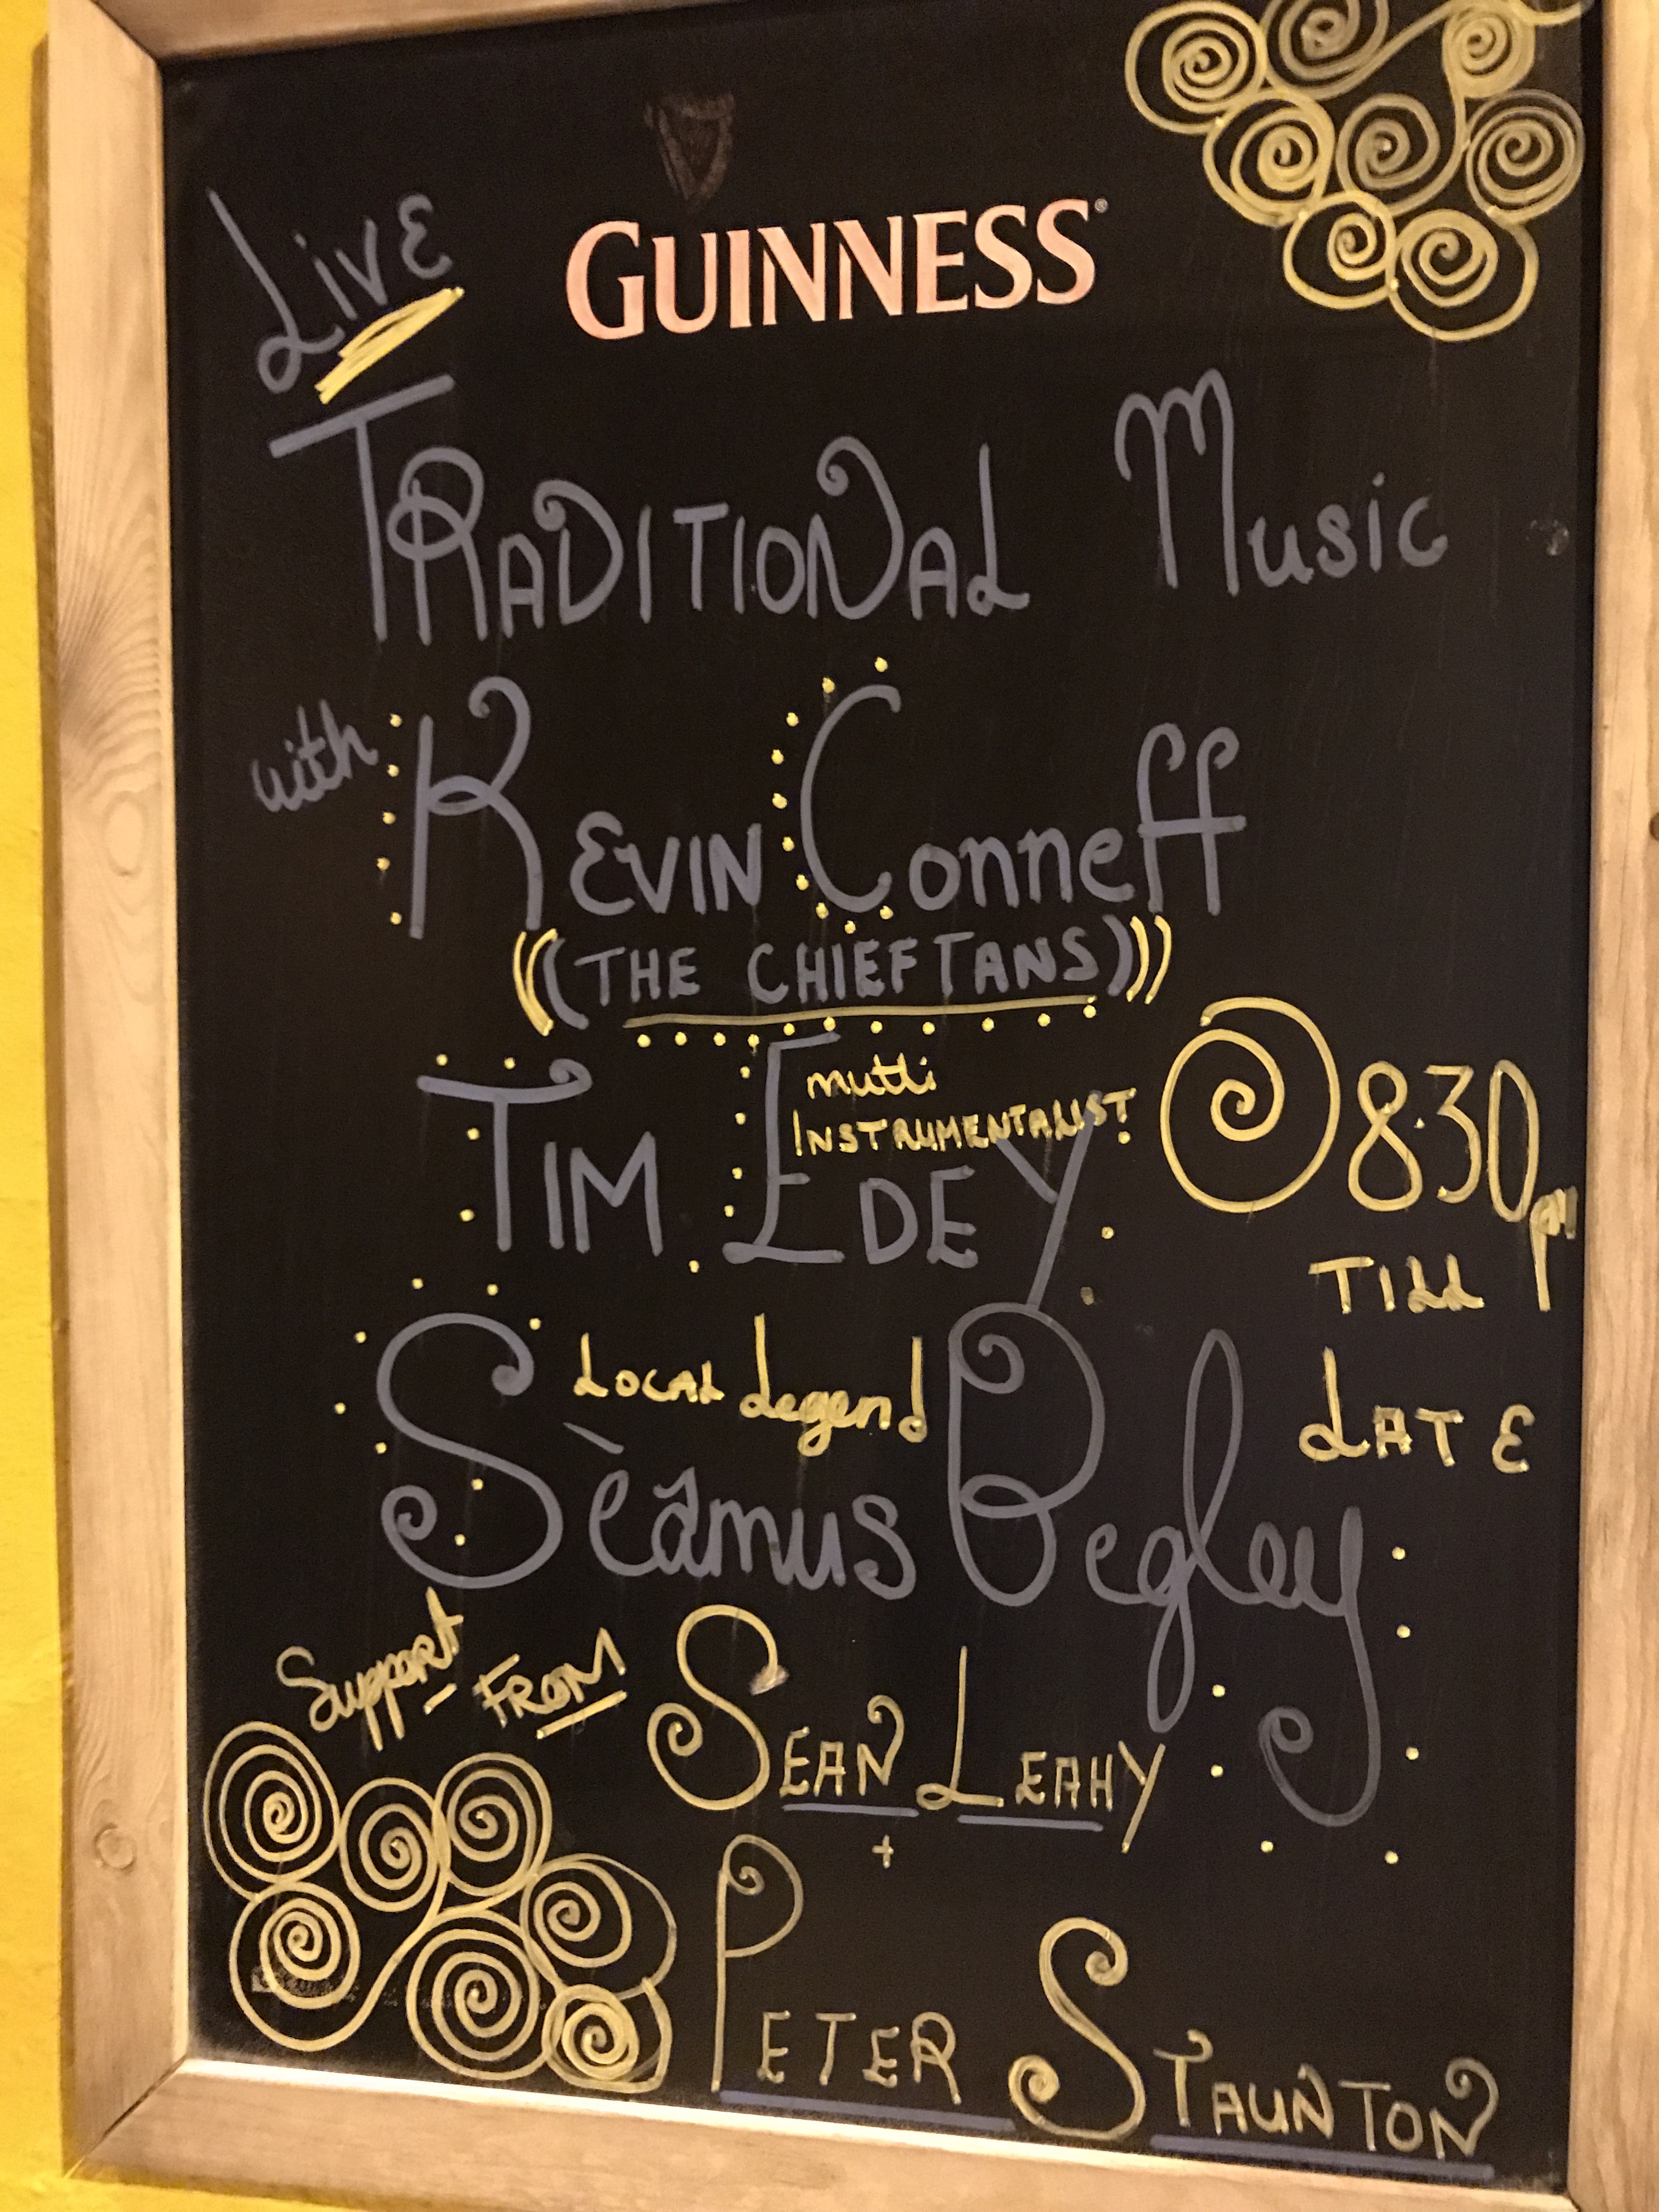 GUINNESS®
LiVE
TRADITIONAL Music
with KEVIN Conneff
(((THE CHIEFTANS)))
mutti
INSTRUMENTALIST
TIM EDEY
@ 8.30 pm
TILL
LATE
LOCAL Legend
Sèamus Begley
Support FROM SEAN LEAHY
+
PETER STAUNTON